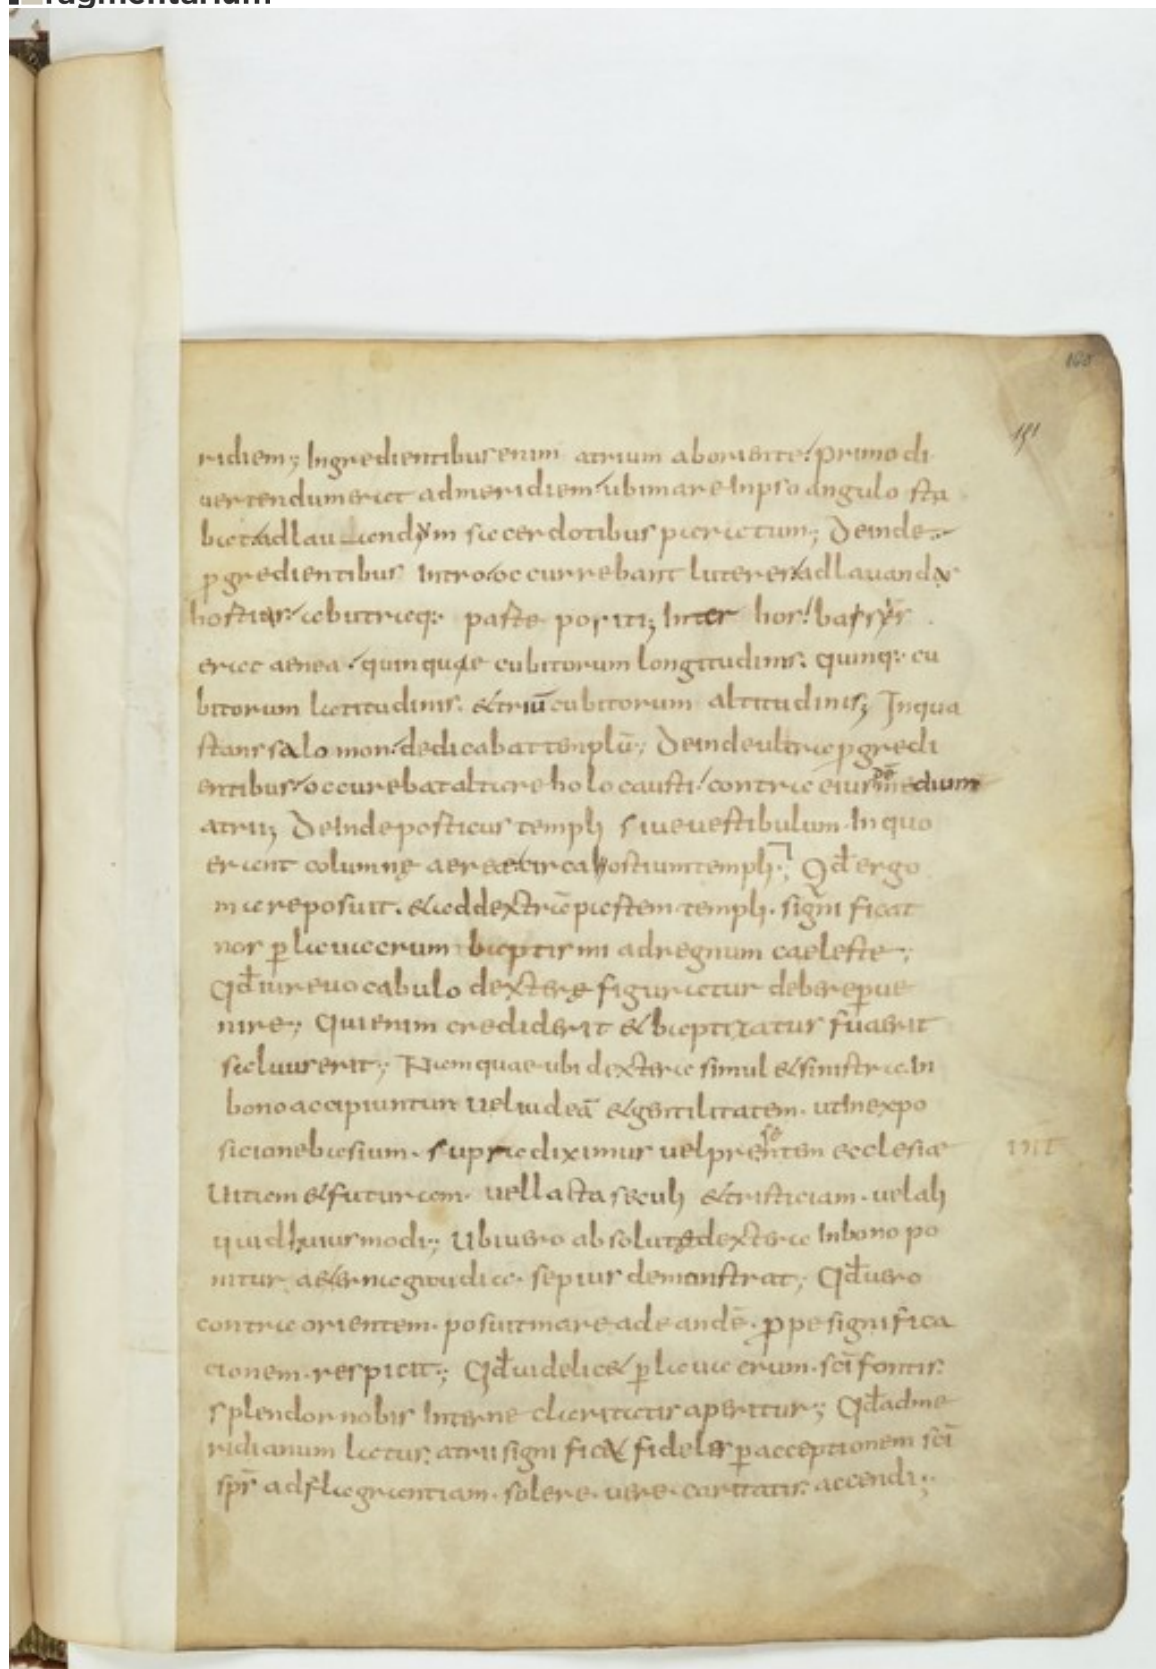 ragmentarium
160
191
ridiem; Ingredientibus enim atrium aboriente. primo di
uertendum erat admeridiem ubi mare Inipso angulo sta
bat adlauandum sacerdotibus paratum; Deinde
p̱gredientibus Intro occurrebant luteres adlauandas
hostias. abutraq; paste positi; Inter hos. basys
erat aenea. quinquae cubitorum longitudinis. quinq; cu
bitorum latitudinis. & triū cubitorum altitudinis; Inqua
stans salomon. dedicabat templū; Deinde ultra p̱gredi
entibus occurebat altare holocausti. contra eius medium
atrii; Deinde posticus templi siue uestibulum. In quo
erant columnę aereae circa hostium templi; Qđ ergo
mare posuit. & addextrā pastem templi. significat
nos p̱ lauacrum baptismi adregnum caeleste;
Qđ iure uocabulo dexterę figuratur debere p̱ue
nire; Qui enim crediderit & baptizatus fuaerit
saluus erit; Nam quae ubi dextera simul & sinistra. In
bono accipiuntur uel iudeā & gentilitatem. ut In expo
sicione basium. supra diximus uel presentem ecclesiae
uitam & futuram. uel lacta seculi & tristiciam. uel ali
quid huiusmodi; Ubi uero absolutę dextera Inbono po
nitur aeterna gaudia. sepius demonstrat; Qđ uero
contra orientem. posuit mare ad eandē. p̱pe significa
cionem. respicit; Qđ uidelic& p̱ lauacrum. sc̄i fontis.
splendor nobis Interne claritatis aperitur; Qđ adme
ridianum latus. atrii significat fideles p̱ acceptionem sc̄i
sp̄s adflagrantiam. solere. uere. caritatis. accendi;